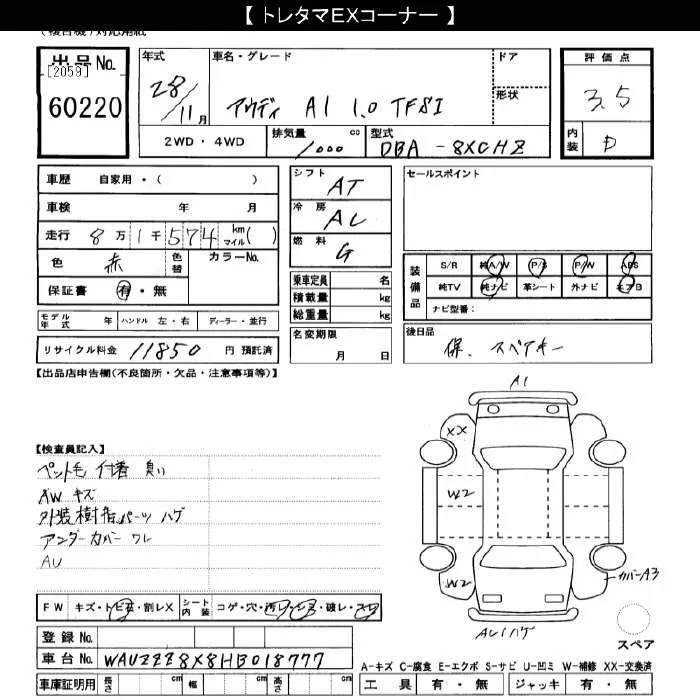 【 トレタマEXコーナー 】
出品No.
[2059]
60220
年式
28/11月
車名・グレード
アウディ A1 1.0 TFSI
ドア
形状
評価点
3.5
内装 D
2WD・4WD
排気量 1000 cc
型式 DBA-8XCHZ
車歴 自家用・( )
車検 年 月
走行 8万1千574 km マイル( )
色 赤 色替 カラーNo.
保証書 有・無
モデル年式 年 ハンドル 左・右 ディーラー・並行
リサイクル料金 11850 円 預託済
シフト AT
冷房 AC
燃料 G
乗車定員 名
積載量 kg
総重量 kg
名変期限 月 日
セールスポイント
装備品
S/R 純A/W P/S P/W ABS
純TV 純ナビ 革シート 外ナビ エアB
ナビ型番:
後日品
保、スペアキー
【出品店申告欄(不良箇所・欠品・注意事項等)】
【検査員記入】
ペット毛 付着 臭い
AW キズ
外装樹脂パーツ ハゲ
アンダーカバー ワレ
A1
XX
W2
W2
カバーA3
スペア
FW キズ・トビ石・割レX シート内装 コゲ・穴・汚レ・シミ・破レ・スレ
登録No.
車台No. WAUZZZ8X8HB018777
車庫証明用 長さ cm 幅 cm 高さ cm
A-キズ C-腐食 E-エクボ S-サビ U-凹ミ W-補修 XX-交換済
工具 有・無 ジャッキ 有・無